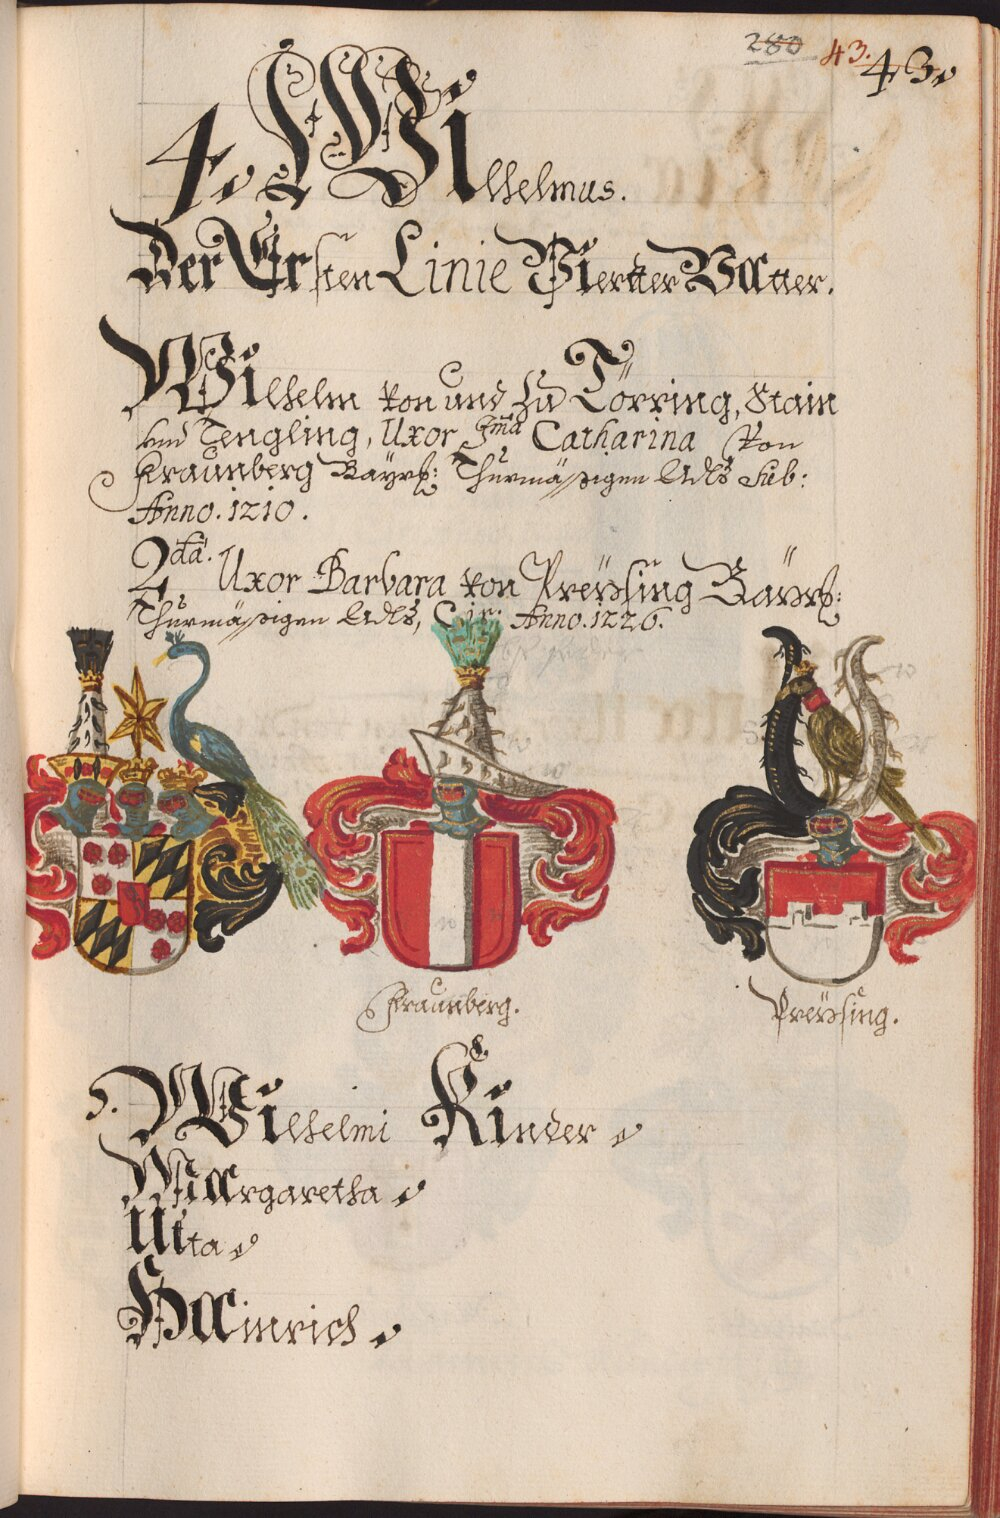 280 43. 43.
4. Wilhelmus.
Der Ersten Linie Vierter Vatter.
Wilhelm von und zu Törring, Stain
und Tengling, Uxor 1ma Catharina von
Fraunberg Bayrß: Thurmäßigen Adls
Anno. 1210.
2da. Uxor Barbara von Preÿsing Bayrß:
Thurmäßigen Adls, Cir. Anno. 1226.
Fraunberg.
Preÿsing.
5. Wilhelmi Kinder.
Margaretha.
Uta.
Hainrich.